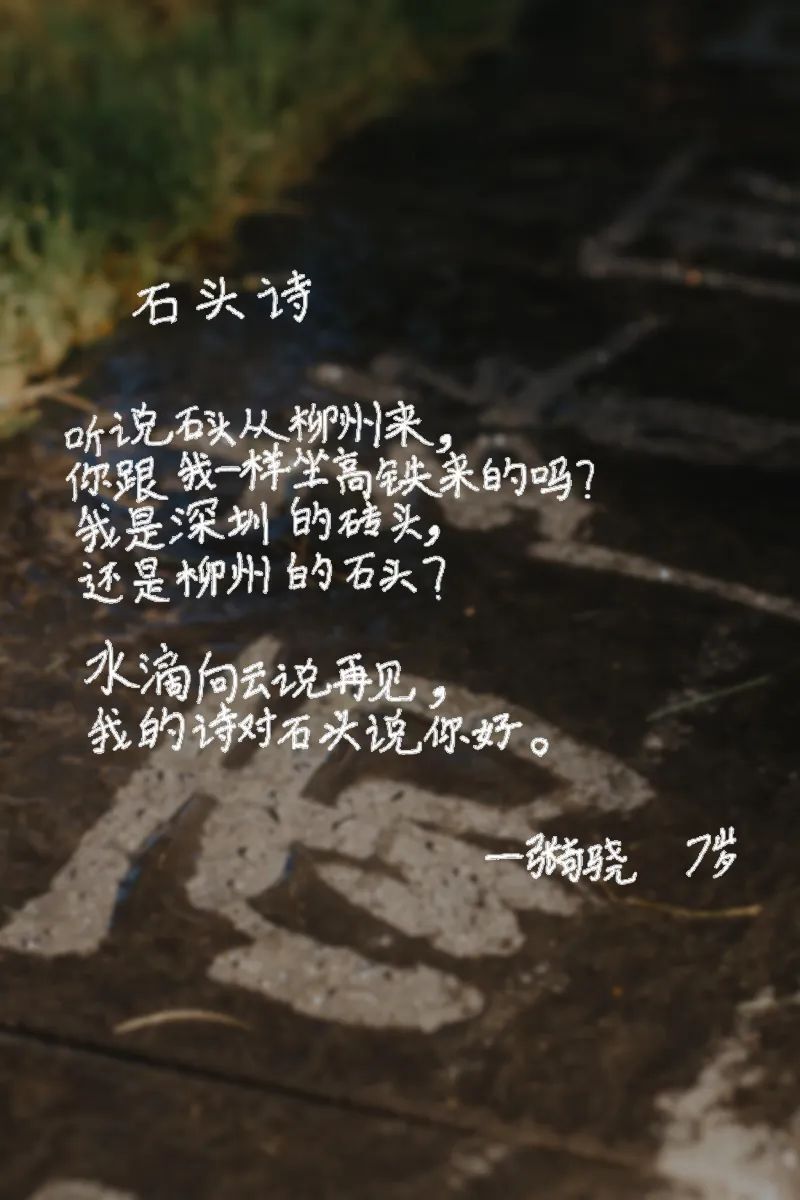 石头诗
听说石头从柳州来，
你跟我一样坐高铁来的吗？
我是深圳的砖头，
还是柳州的石头？
水滴向云说再见，
我的诗对石头说你好。
7岁